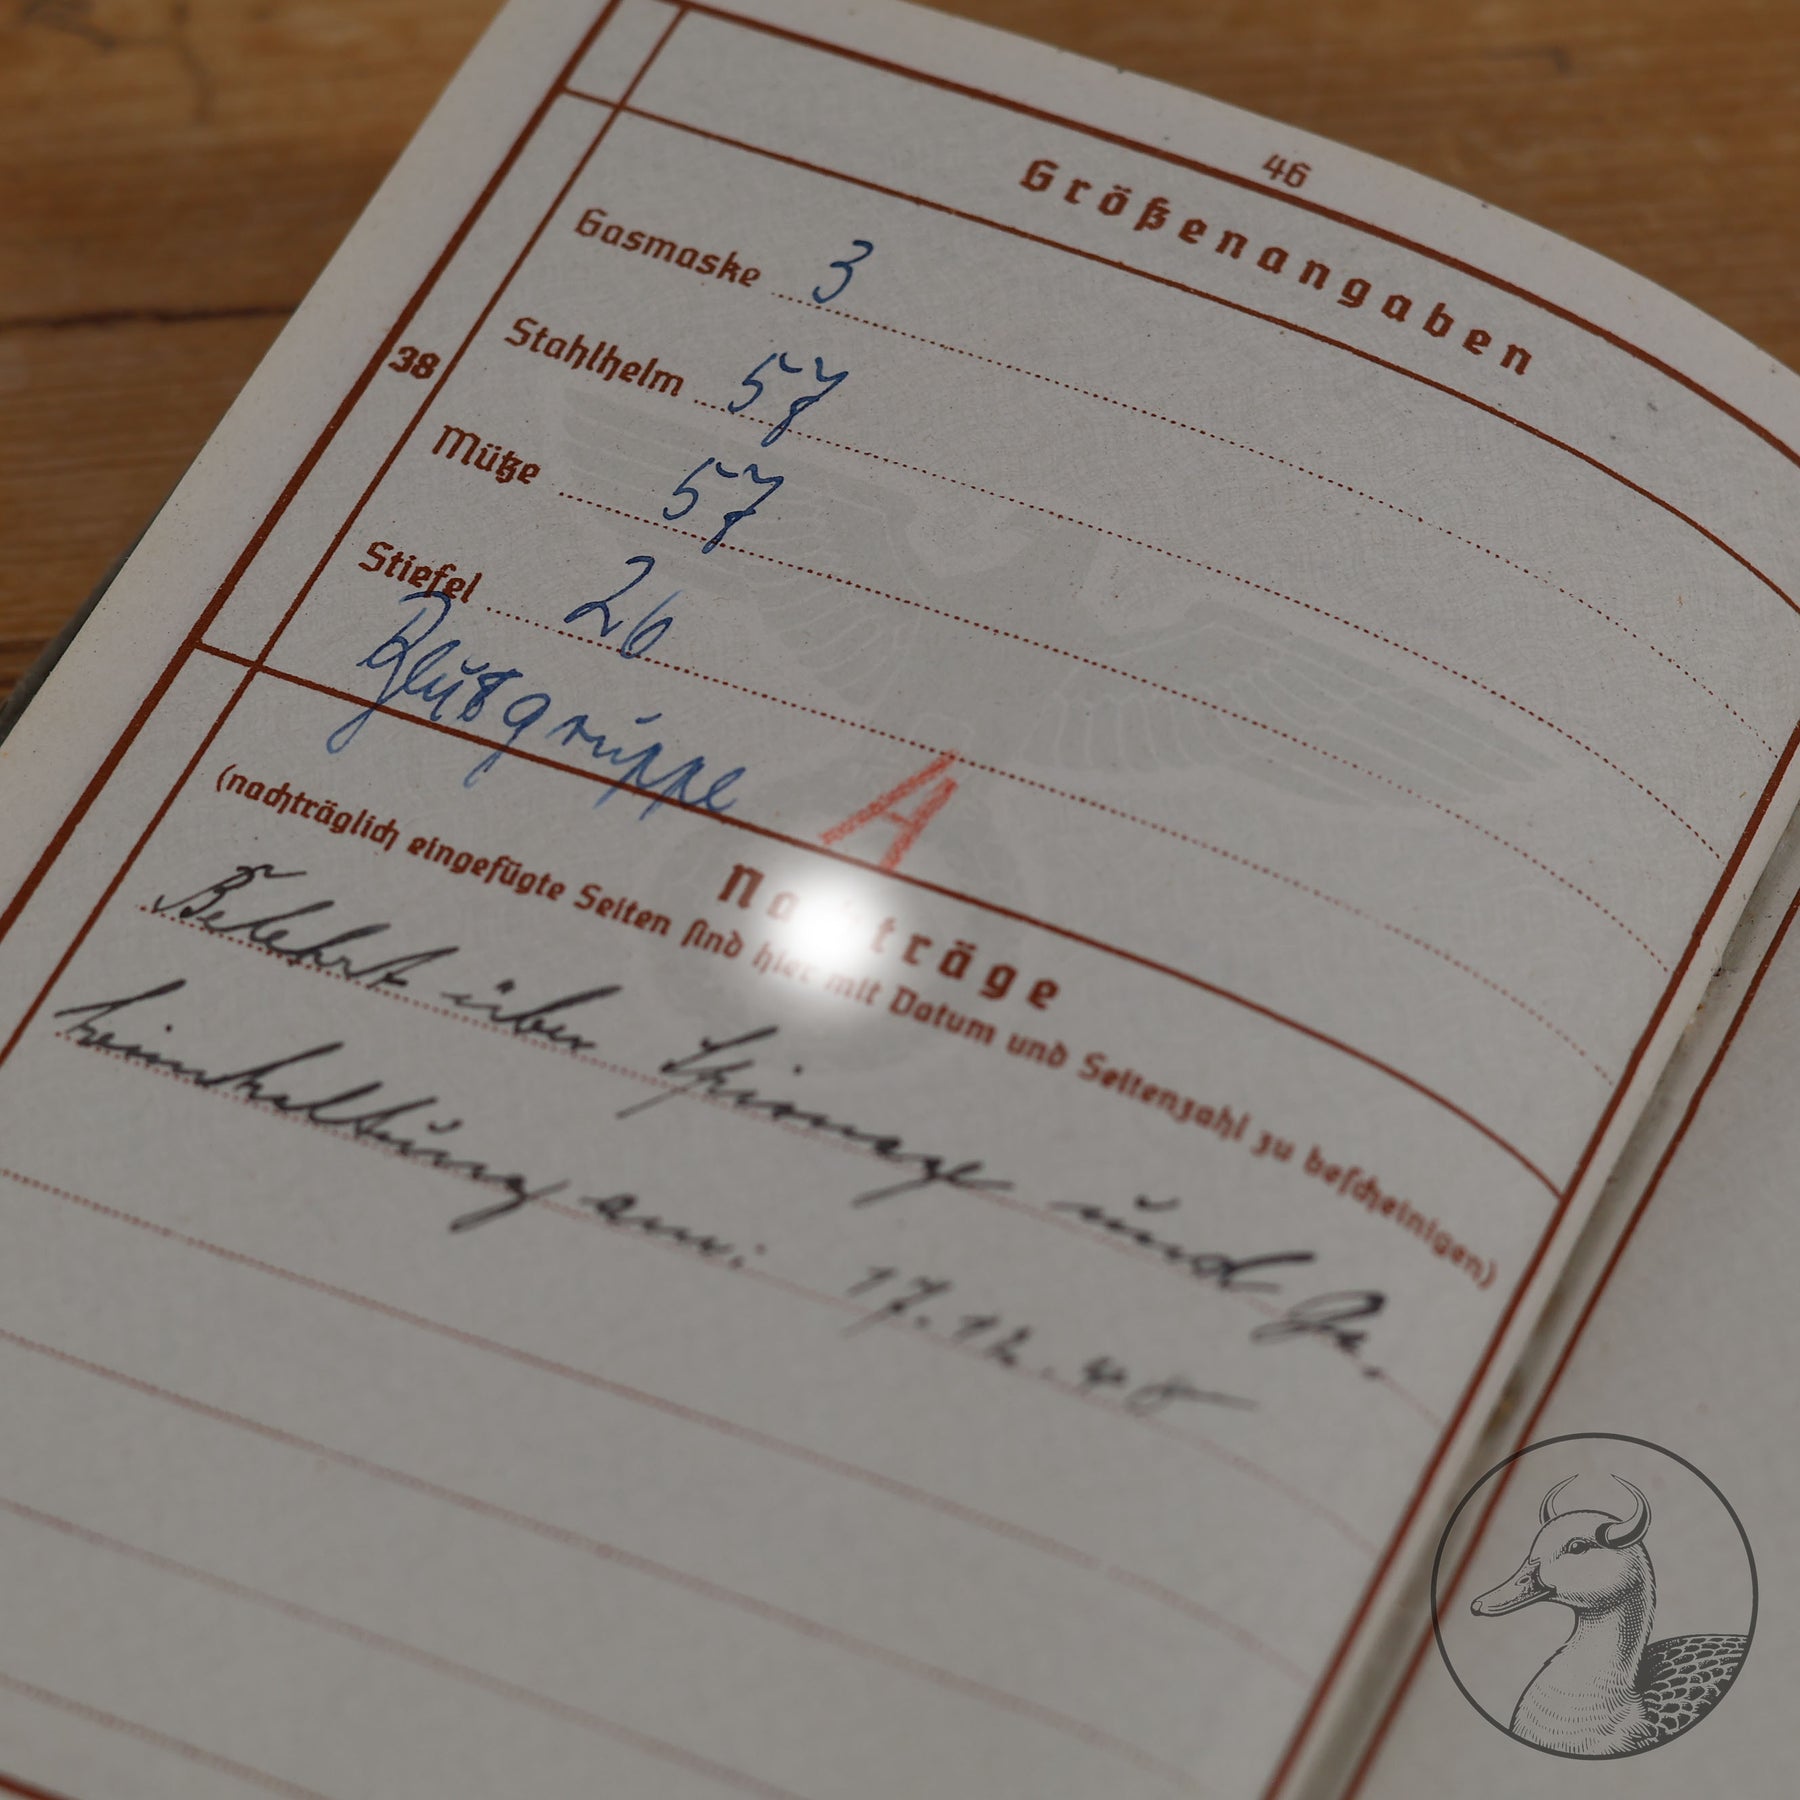 46
Größenangaben
38
Gasmaske 3
Stahlhelm 57
Mütze 57
Stiefel 26
Blutgruppe A
Nachträge
(nachträglich eingefügte Seiten sind hier mit Datum und Seitenzahl zu bescheinigen)
Belehrt über Spionage und Ge.
heimhaltung am: 17.12.